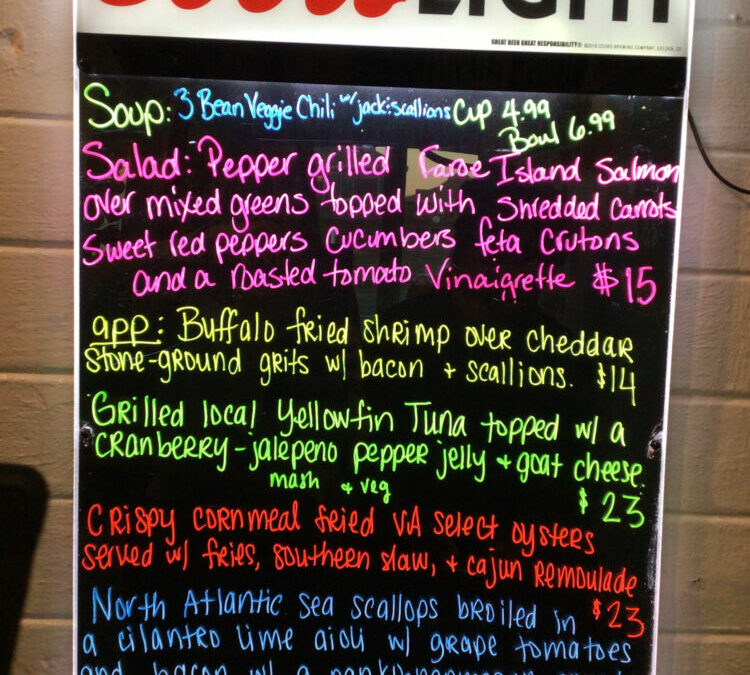 LIGHT
GREAT BEER GREAT RESPONSIBILITY® ©2015 COORS BREWING COMPANY, GOLDEN, CO
Soup: 3 Bean Veggie Chili w/jack&scallions Cup 4.99
Bowl 6.99
Salad: Pepper grilled Faroe Island Salmon
over mixed greens topped with Shredded Carrots
Sweet red peppers Cucumbers feta Crutons
and a roasted tomato Vinaigrette $15
app: Buffalo fried shrimp over cheddar
stone-ground grits w/ bacon + scallions. $14
Grilled local Yellowfin Tuna topped w/ a
cranberry-jalepeno pepper jelly + goat cheese.
mash + veg $23
Crispy cornmeal fried VA select oysters
served w/ fries, southern slaw, + cajun remoulade
$23
North Atlantic sea scallops broiled in
a cilantro lime aioli w/ grape tomatoes
and bacon w/ a